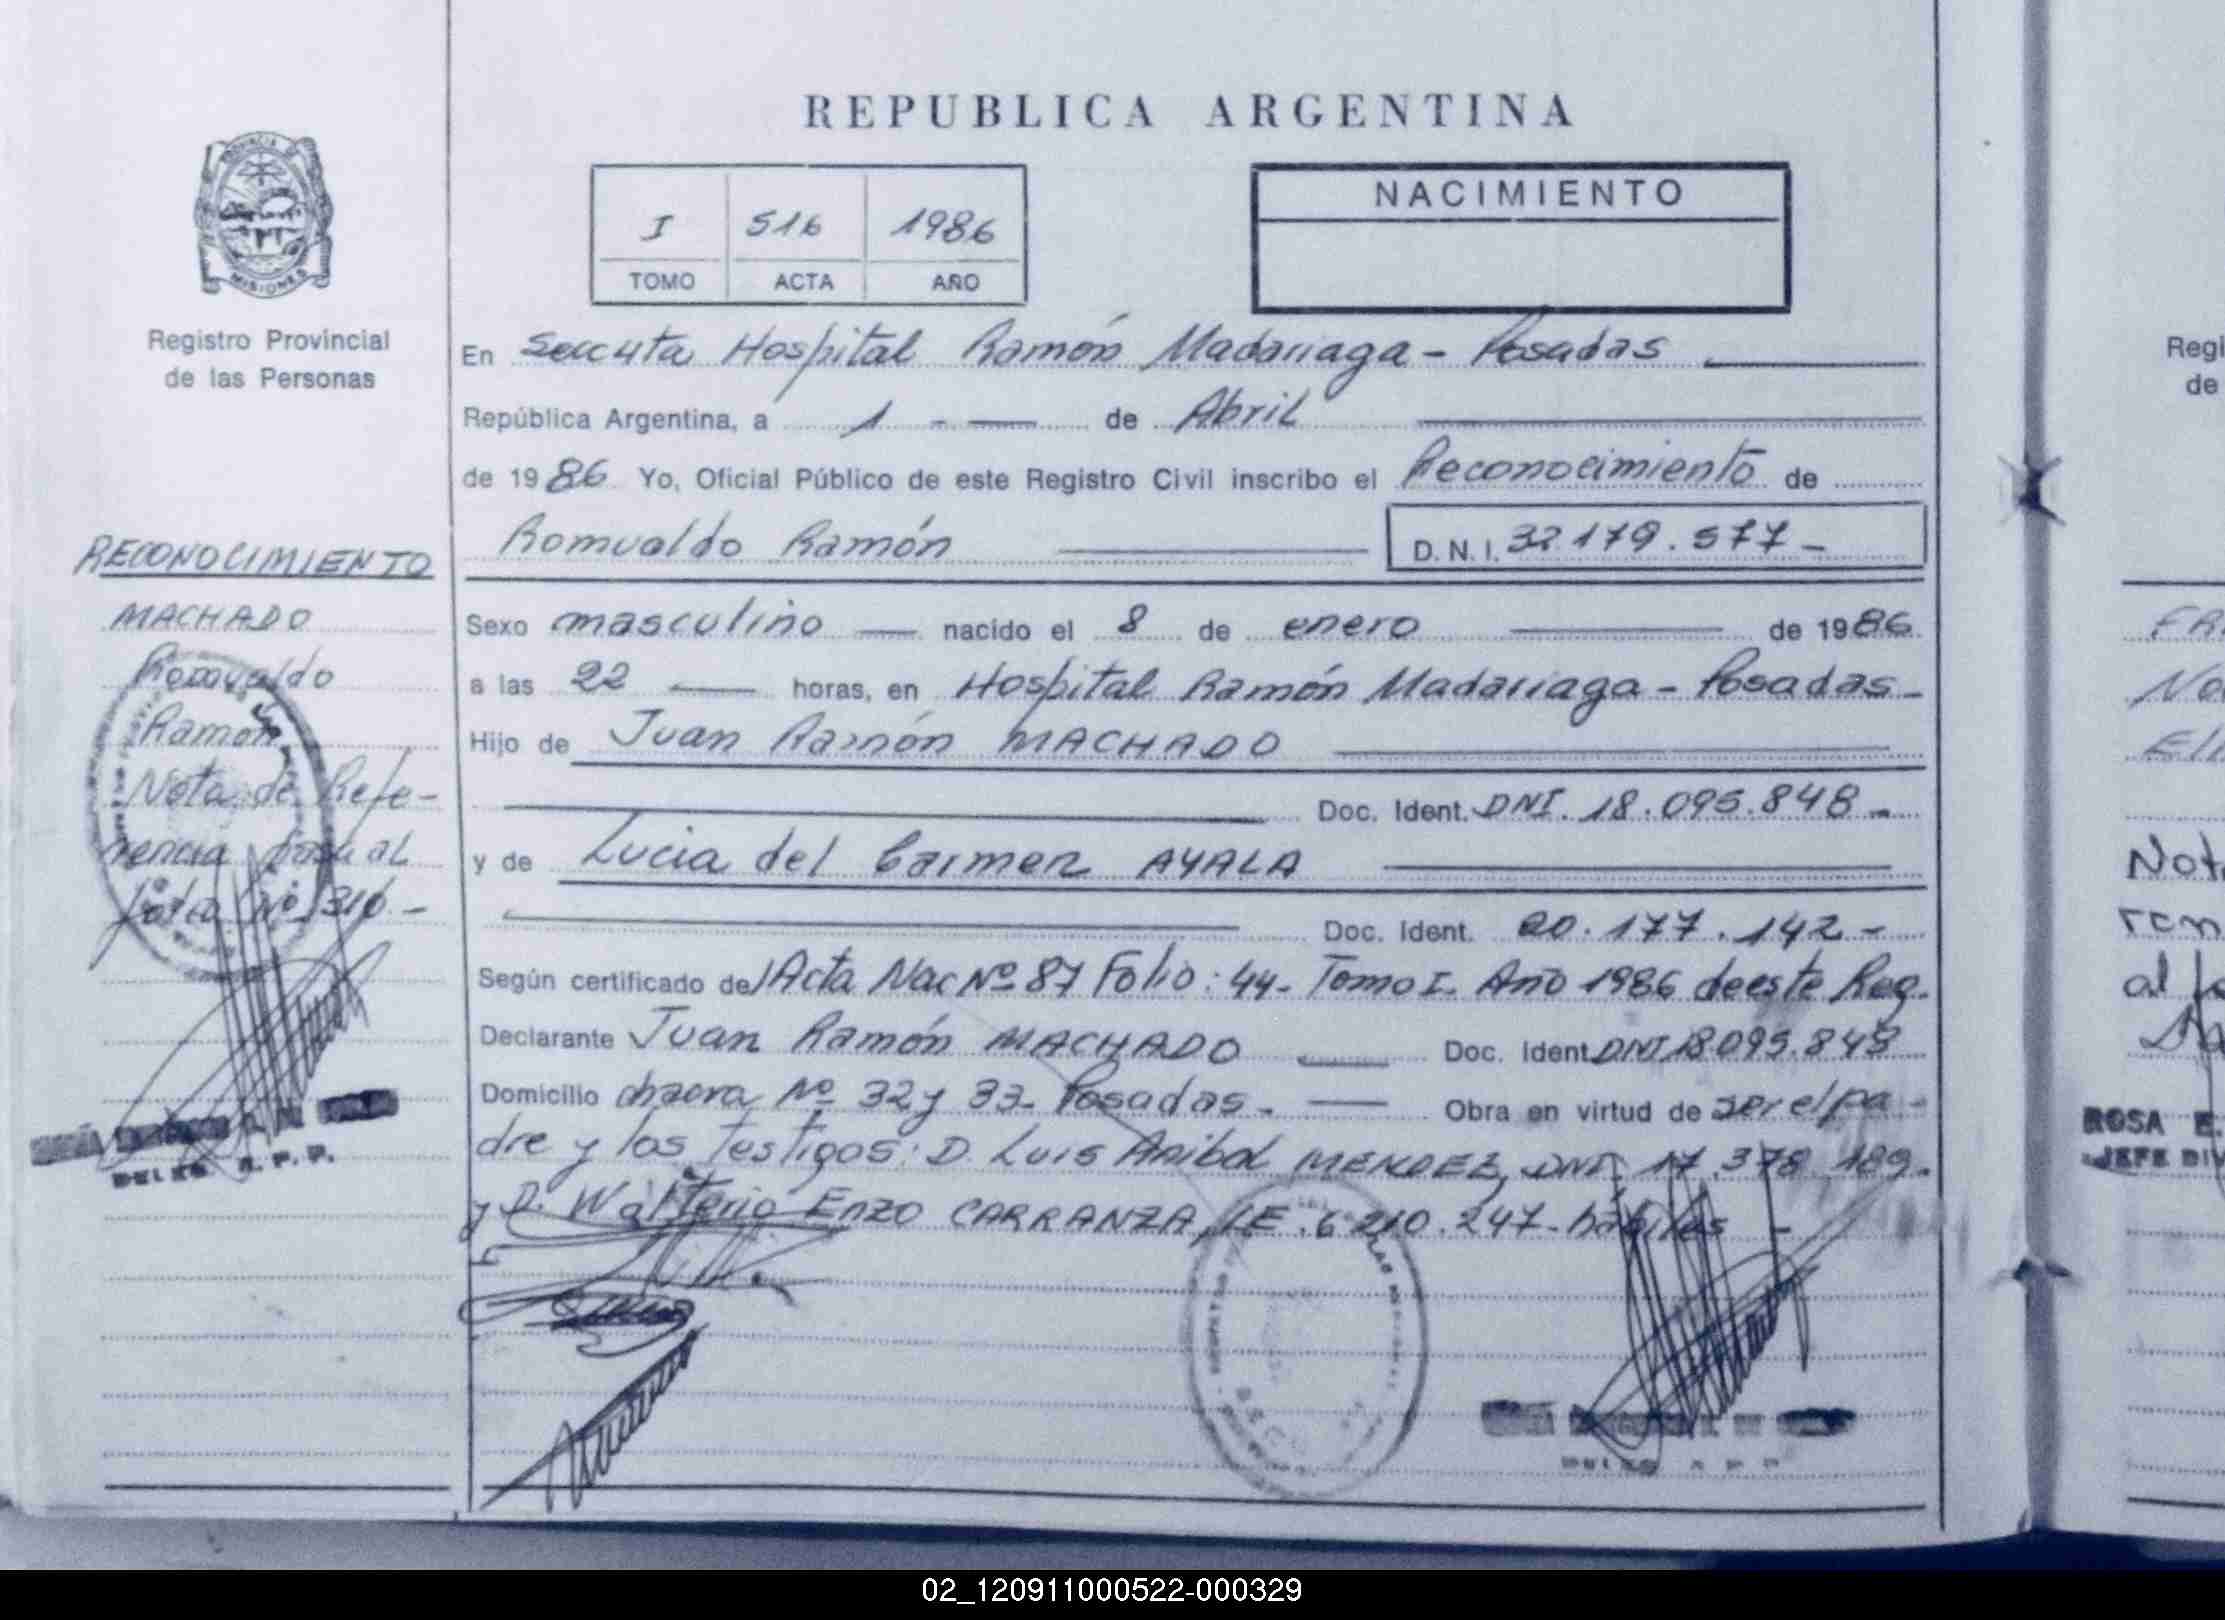 REPUBLICA ARGENTINA
PROVINCIA DE
MISIONES
Registro Provincial
de las Personas
I 516 1986
TOMO ACTA AÑO
NACIMIENTO
En Hospital Ramón Madariaga - Posadas
República Argentina, a 1 - de Abril
de 1986 Yo, Oficial Público de este Registro Civil inscribo el Reconocimiento de
Romualdo Ramón D. N. I. 32.179.577-
Sexo masculino nacido el 8 de enero de 1986
a las 22 horas, en Hospital Ramón Madariaga - Posadas-
Hijo de Juan Ramón MACHADO
Doc. Ident. DNI. 18.095.848-
y de Lucia del Carmen AYALA
Doc. Ident. 20.177.142-
Según certificado de Acta Nac Nº 87 Folio: 44- Tomo I. Año 1986 de este Reg.
Declarante Juan Ramón MACHADO Doc. Ident. DNI 18095.848
Domicilio chacra Nº 32 y 33- Posadas- Obra en virtud de ser el pa-
dre y los testigos: D. Luis Anibal MENDEZ, DNI, 17.378.189.
y D. Walterio Enzo CARRANZA, LE. 6.210.247- hábiles -
RECONOCIMIENTO
MACHADO
Romualdo
Ramón
Nota de Refe-
rencia al
Nº 316-
R. P. P.
Regi
de
Not
al
ROSA E.
JEFE DIV
02_120911000522-000329